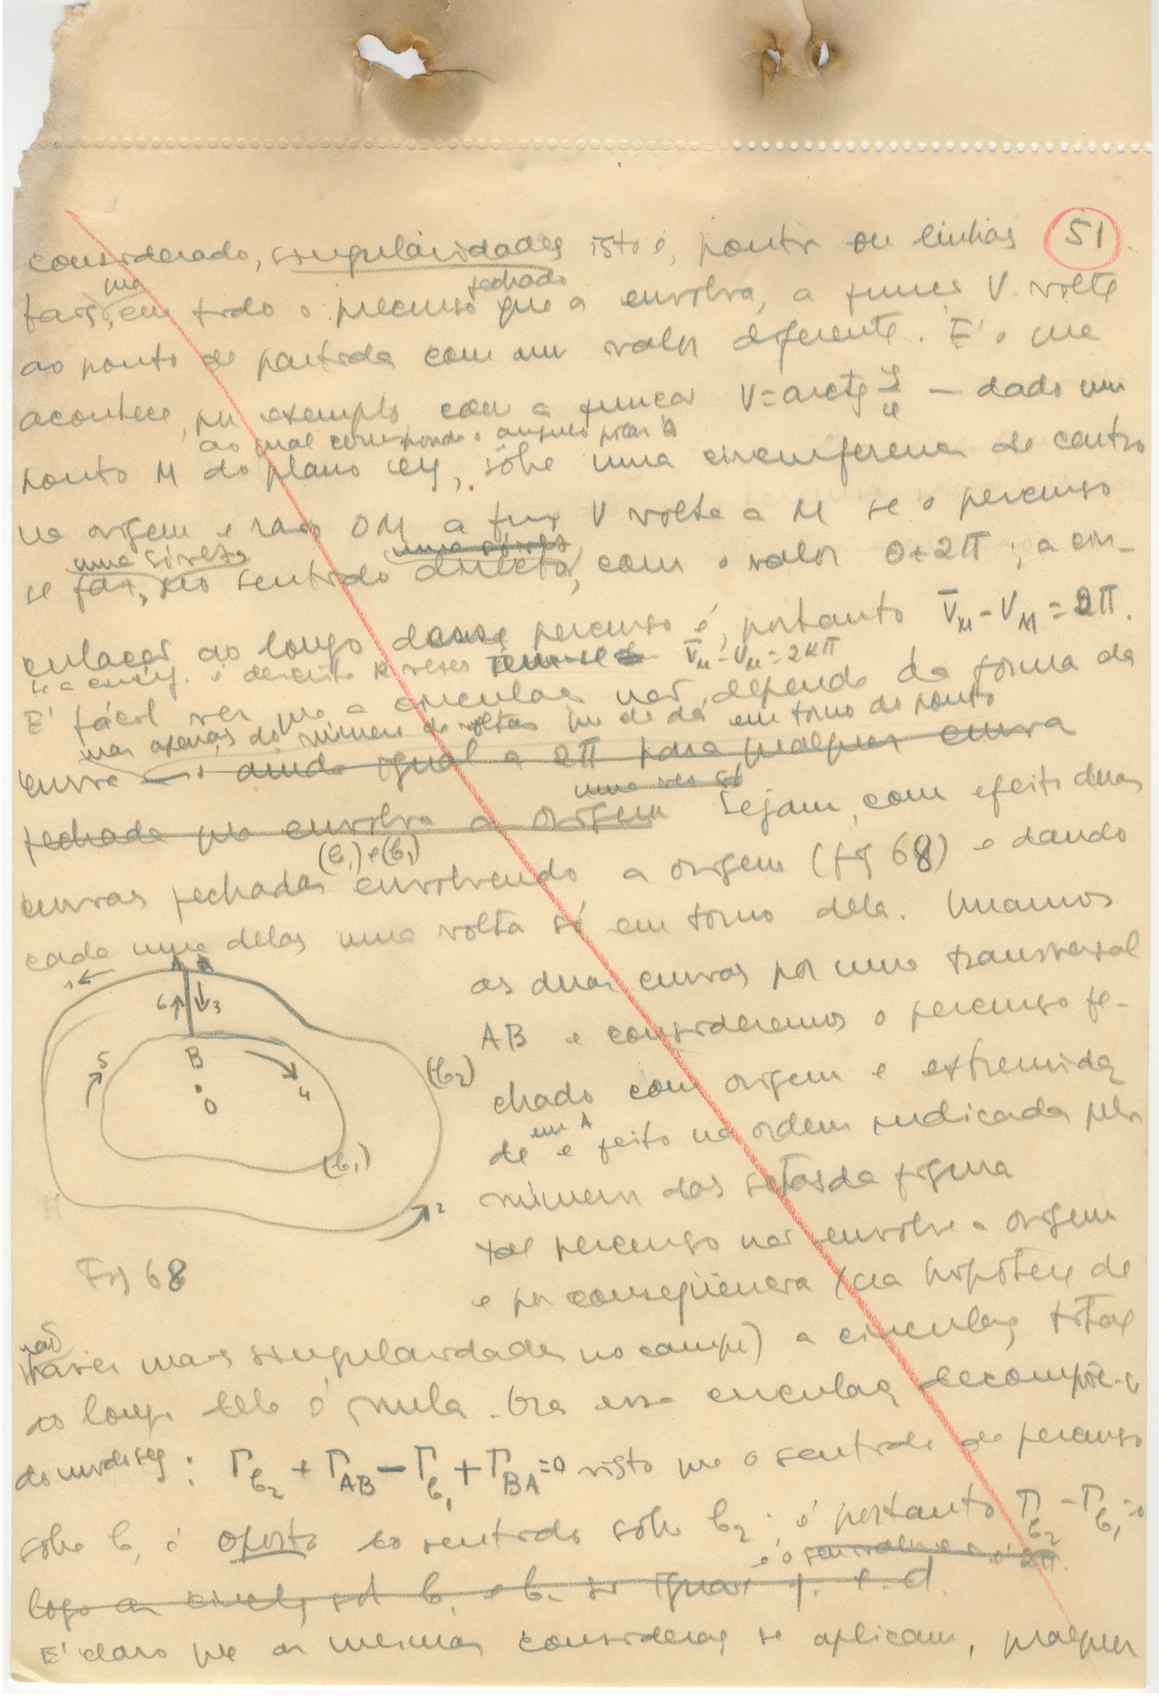 51
considerado, singularidades isto é, pontos ou linhas
tais, que em todo o percurso fechado que a envolva, a função V volte
ao ponto de partida com um valor diferente. E' o que
acontece, por exemplo com a função V = arctg y/x — dado um
ao qual corresponde o ângulo polar θ
ponto M do plano xy, sôbre uma circunferencia de centro
na origem e raio OM a função V volta a M se o percurso
uma só vez uma só vez
se faz, no sentido directo, com o valor θ+2π ; a cir-
culação ao longo desse percurso é, portanto V̄_M - V_M = 2π.
se a circunf. é descrita k vezes V̄_M - V_M = 2kπ
E' fácil ver que a circulação não depende da forma da
mas apenas do número de voltas que se dá em torno do ponto
curva ainda igual a 2π para qualquer curva
uma vez só
fechada que envolva a origem Sejam, com efeito duas
(C₁) e (C₁)
curvas fechadas envolvendo a origem (fig 68) e dando
cada uma delas uma volta só em torno dela. Unamos
as duas curvas por uma transversal
AB e consideremos o percurso fe-
chado com origem e extremida
de em A e feito na ordem indicada pelos
números das setas da figura
Tal percurso não envolve a origem
e por conseqüencia (na hipótese de
não haver mais singularidades no campo) a circulação total
ao longo dele é nula. Ora essa circulação decompõe-se
do modo seg: Γ_C₂ + Γ_AB - Γ_C₁ + Γ_BA = 0 visto que o sentido de percurso
sôbre C₁ é oposto ao sentido sôbre C₂ ; é portanto Γ_C₂ - Γ_C₁ = 0
logo as circulação sob C₁ e C₂ são iguais q. e. d.
E' claro que as mesmas considerações se aplicam, qualquer
A B
1
6 3
B
5
4
O
(C₂)
(C₁)
2
Fig 68